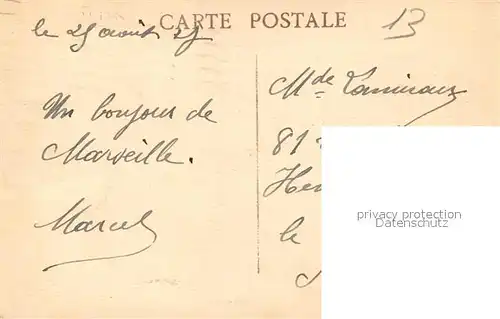 CARTE POSTALE
13
le 25 août 25
Un bonjour de
Marseille.
Marcel
Mde
81
Hen
le
privacy protection
Datenschutz